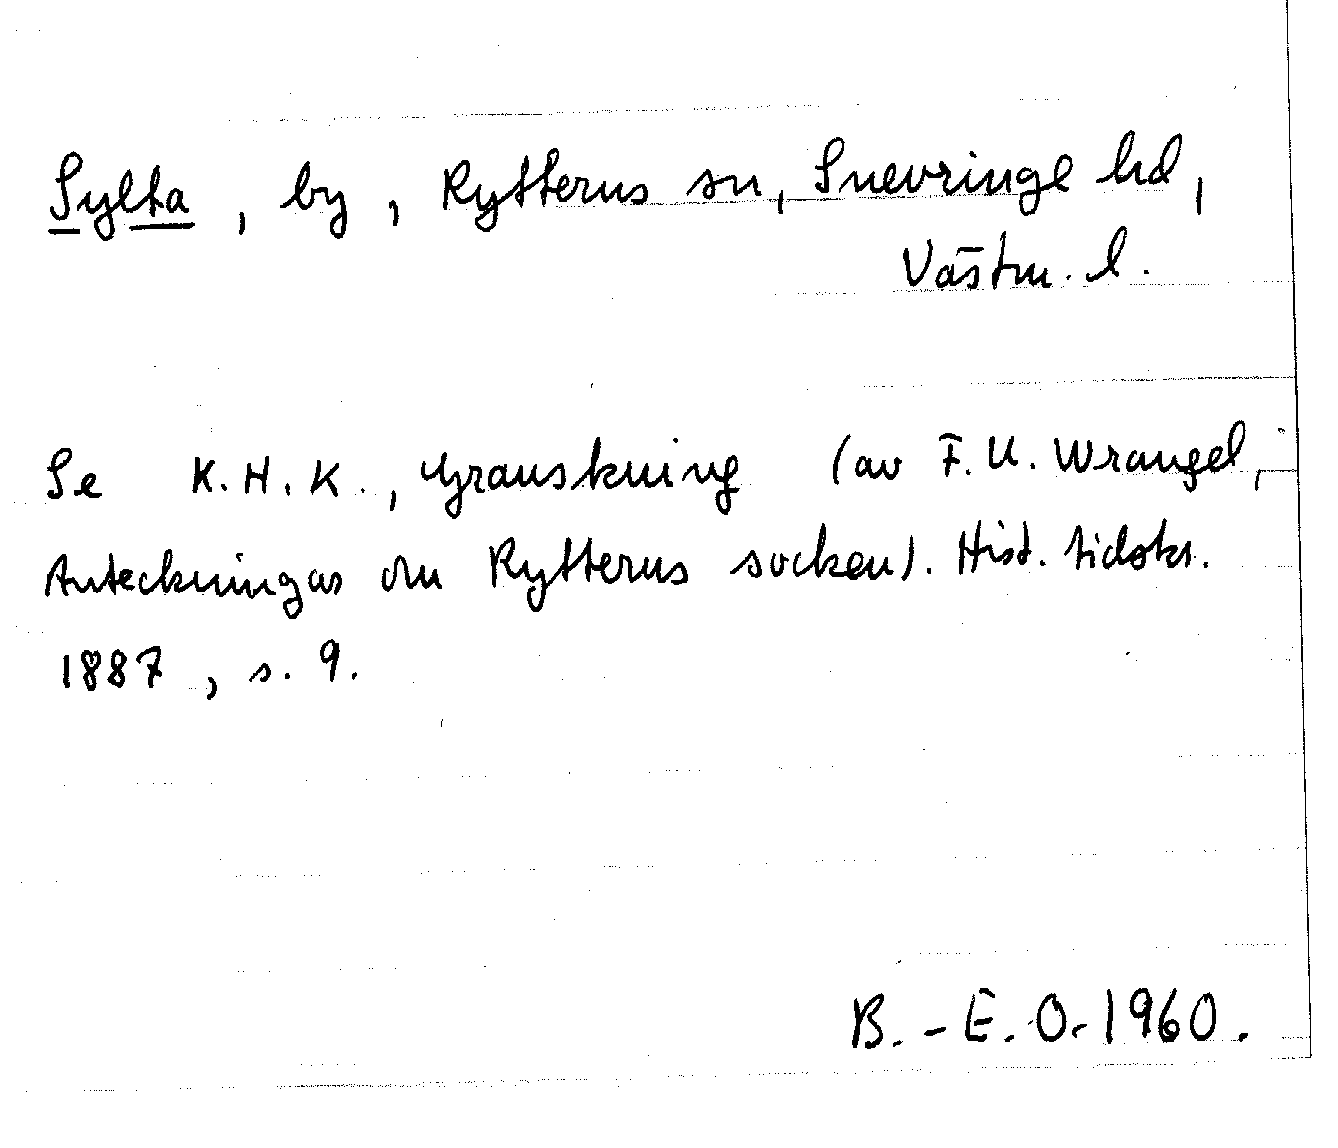 Sylta, by, Rytterns sn, Snevringe hd,
Västm. l.
Se K.H.K., Granskning (av F.U. Wrangel,
Anteckningar om Rytterns socken). Hist. tidskr.
1887, s. 9.
B.-E.O. 1960.